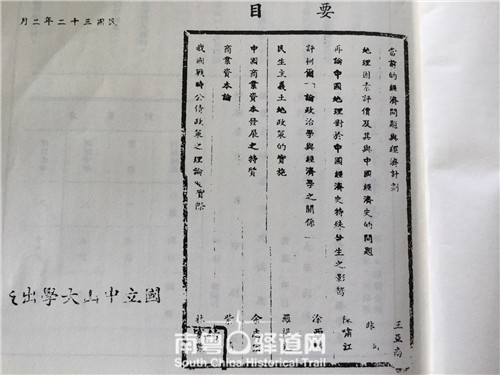 要目
當前的經濟問題與經濟計劃 王亞南
地理因素評價及其與中國經濟史的問題
再論中國地理對於中國經濟史特殊發生之影响 陳嘯江
評柯爾「論政治學與經濟學之關係」
民生主義土地政策的實施
中國商業資本發展之特質
商業資本論
我國戰時公債政策之理論及實際
民國三十二年二月
國立中山大學出
南粤古驿道网
South China Historical Trail